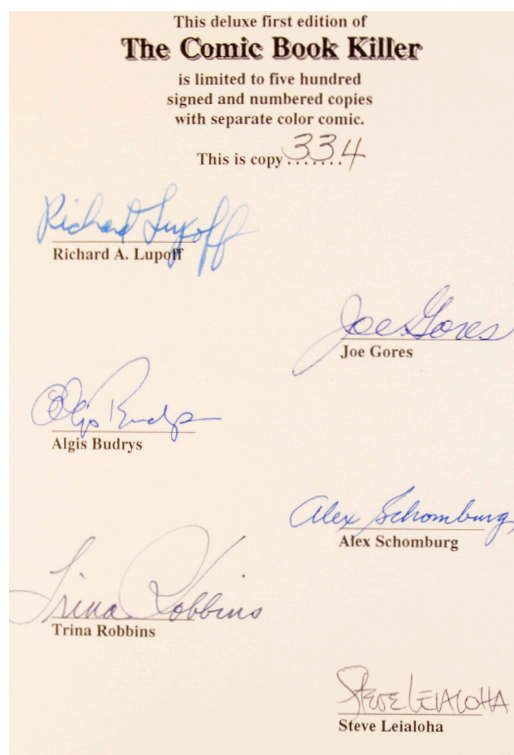 This deluxe first edition of
The Comic Book Killer
is limited to five hundred
signed and numbered copies
with separate color comic.
This is copy.......334
Richard Lupoff
Richard A. Lupoff
Joe Gores
Joe Gores
Algis Budrys
Algis Budrys
Alex Schomburg
Alex Schomburg
Trina Robbins
Trina Robbins
Steve Leialoha
Steve Leialoha